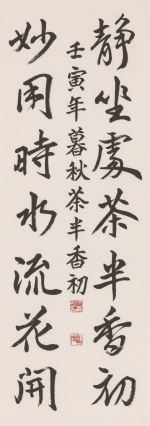 靜坐處茶半香初
妙用時水流花開
壬寅年暮秋茶半香初